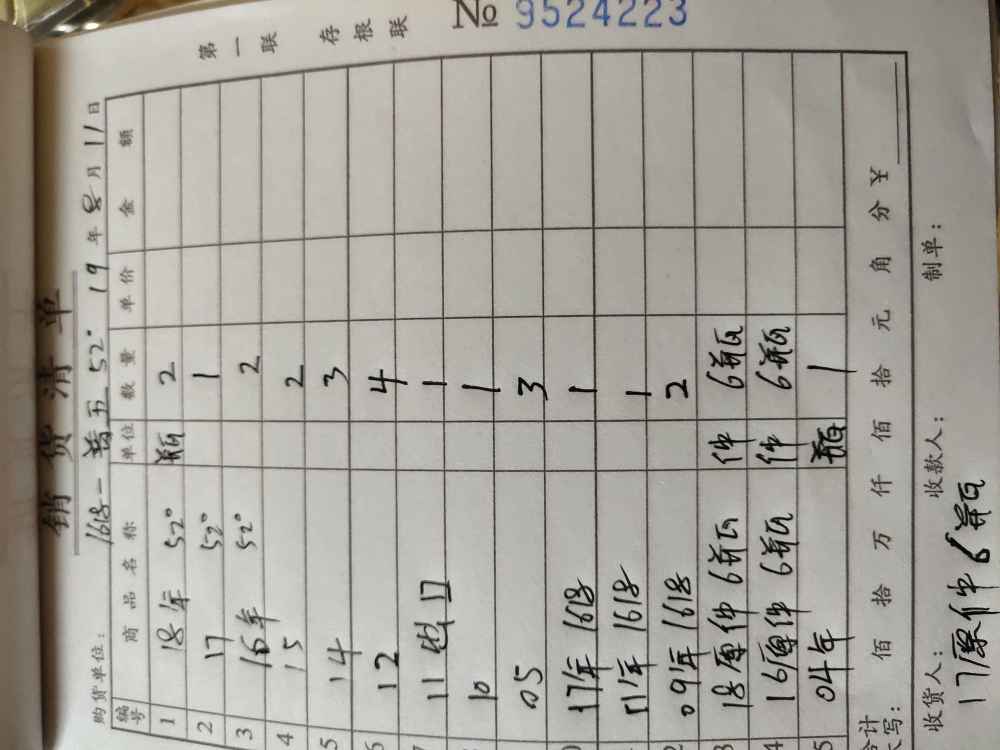 销货清单
第一联 存根联
№ 9524223
购货单位: 1618一普五 52° 19年8月11日
编号 商品名称 单位 数量 单价 金额
1 18年 52° 瓶 2
2 17 52° 1
3 16年 52° 2
4 15 2
5 14 3
6 12 4
11 出口 1
10 1
05 3
17年 1618 1
11年 1618 1
2 09年 1618 2
3 18原件 6瓶 件 6瓶
4 16原件 6瓶 件 6瓶
5 04年 瓶 1
合计
大写: 佰 拾 万 仟 佰 拾 元 角 分 ¥
收货人: 收款人: 制单:
17原件 6瓶